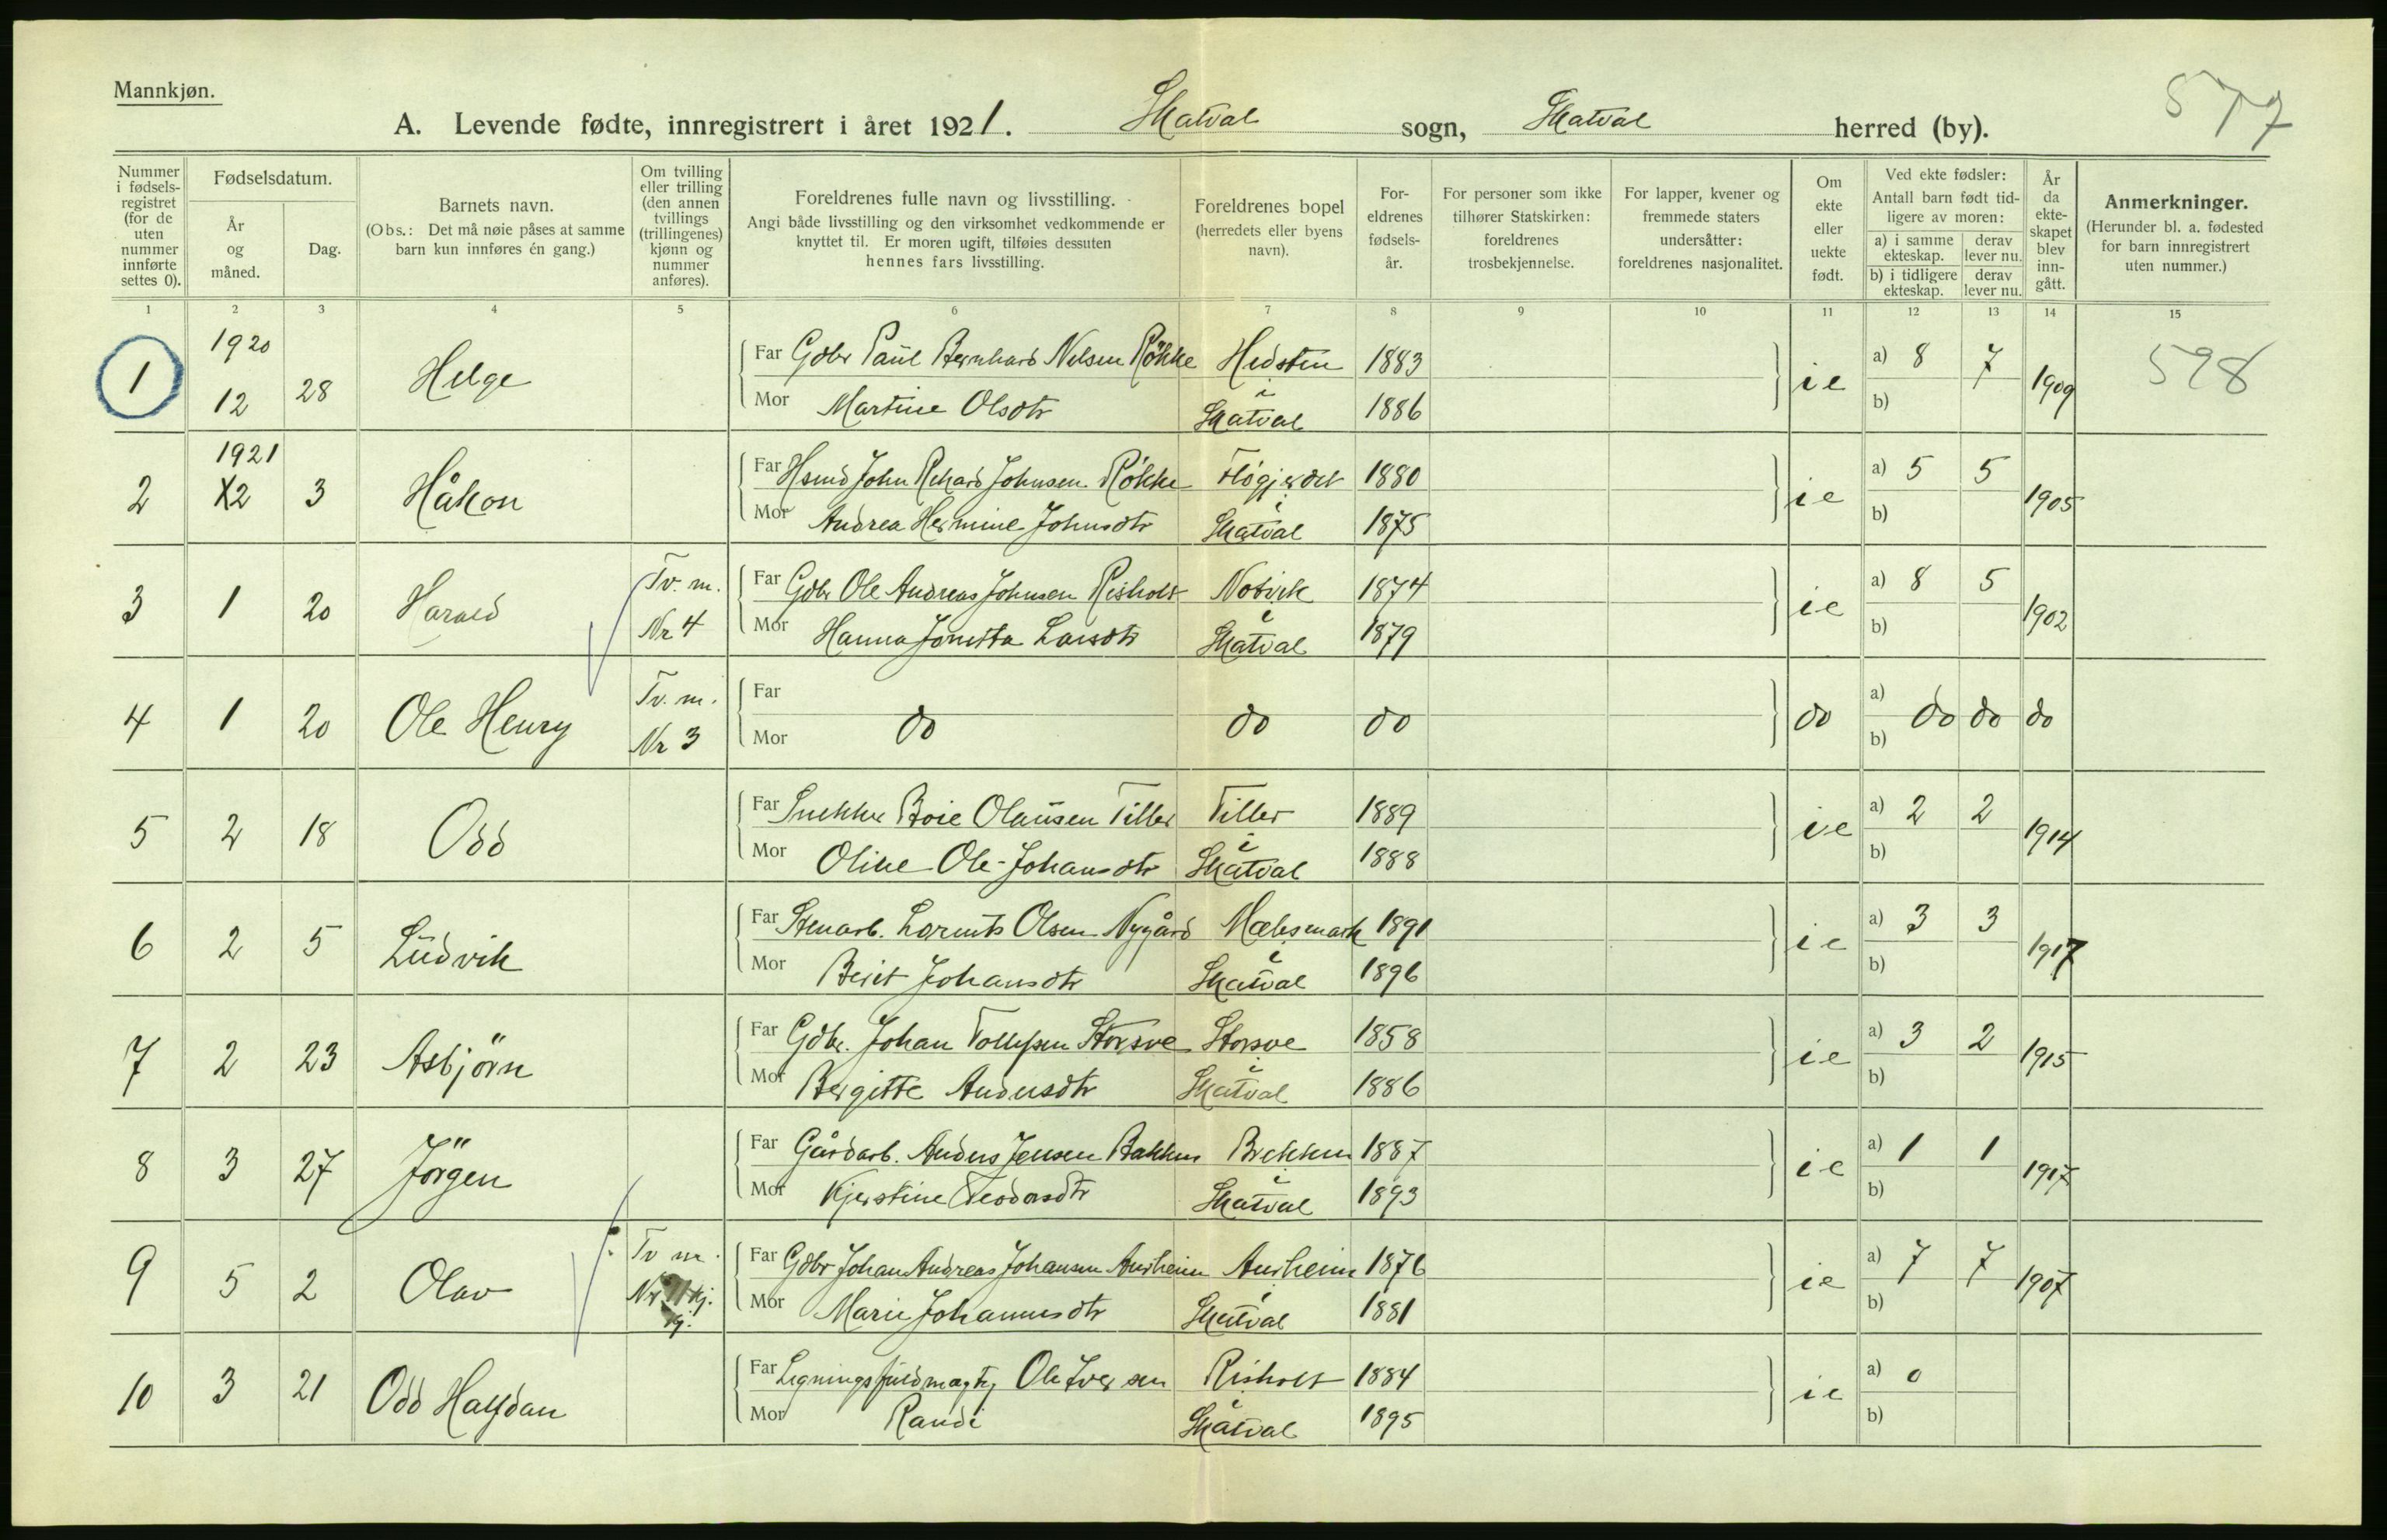 Mannkjøn.
577
A. Levende fødte, innregistrert i året 1921. Skatval sogn, Skatval herred (by).
Nummer i fødsels-registret (for de uten nummer innførte settes 0).
Fødselsdatum.
År og måned.
Dag.
Barnets navn.
(Obs.: Det må nøie påses at samme barn kun innføres én gang.)
Om tvilling eller trilling (den annen tvillings (trillingenes) kjønn og nummer anføres).
Foreldrenes fulle navn og livsstilling.
Angi både livsstilling og den virksomhet vedkommende er knyttet til. Er moren ugift, tilføies dessuten hennes fars livsstilling.
Foreldrenes bopel (herredets eller byens navn).
For-eldrenes fødsels-år.
For personer som ikke tilhører Statskirken: foreldrenes trosbekjennelse.
For lapper, kvener og fremmede staters undersåtter: foreldrenes nasjonalitet.
Om ekte eller uekte født.
Ved ekte fødsler:
Antall barn født tid-ligere av moren:
a) i samme ekteskap.
derav lever nu.
b) i tidligere ekteskap.
derav lever nu.
År da ekte-skapet blev inn-gått.
Anmerkninger.
(Herunder bl. a. fødested for barn innregistrert uten nummer.)
1 2 3 4 5 6 7 8 9 10 11 12 13 14 15
1 1920 12 28 Helge Far Gdbr Paul Bernhard Nilsen Røkke Hedstein 1883 ie a) 8 7 1909 598
Mor Martine Olsdtr i Skatval 1886 b)
2 1921 X2 3 Håkon Far Hsmd John Rikard Johnsen Røkke Fløgjerdet 1880 ie a) 5 5 1905
Mor Andrea Hermine Johnsdtr i Skatval 1875 b)
3 1 20 Harald Tv. m. Nr 4 Far Gdbr Ole Andreas Johnsen Risholt 1874 ie a) 8 5 1902
Mor Hanna Larsdtr i Skatval 1879 b)
4 1 20 Ole Henry Tv. m. Nr 3 Far
Mor do do do do a) b) do do do
5 2 18 Odd Far Snekker Boie Olausen Tiller Tiller 1889 ie a) 2 2 1914
Mor Oline Ole-Johansdtr i Skatval 1888 b)
6 2 5 Ludvik Far Stenarb. Lorents Olsen Nygård Mælesmark 1891 ie a) 3 3 1917
Mor Berit Johansdtr i Skatval 1896 b)
7 2 23 Asbjörn Far Gdbr. Johan Tollefsen Storsve Storsve 1858 ie a) 3 2 1915
Mor Bergitte Andersdtr i Skatval 1886 b)
8 3 27 Jörgen Far Gårdarb. Anders Jensen Bakken Brekken 1887 ie a) 1 1 1917
Mor Kjerstine Teodorsdtr i Skatval 1893 b)
9 5 2 Olav Tv m. Nr kj. Far Gdbr Johan Andreas Johansen Aurheim Aurheim 1876 ie a) 7 7 1907
Mor Marie Johannesdtr i Skatval 1881 b)
10 3 21 Odd Halfdan Far Ligningsfuldmægtig Ole Iversen Risholt 1884 ie a) 0
Mor Randi i Skatval 1895 b)